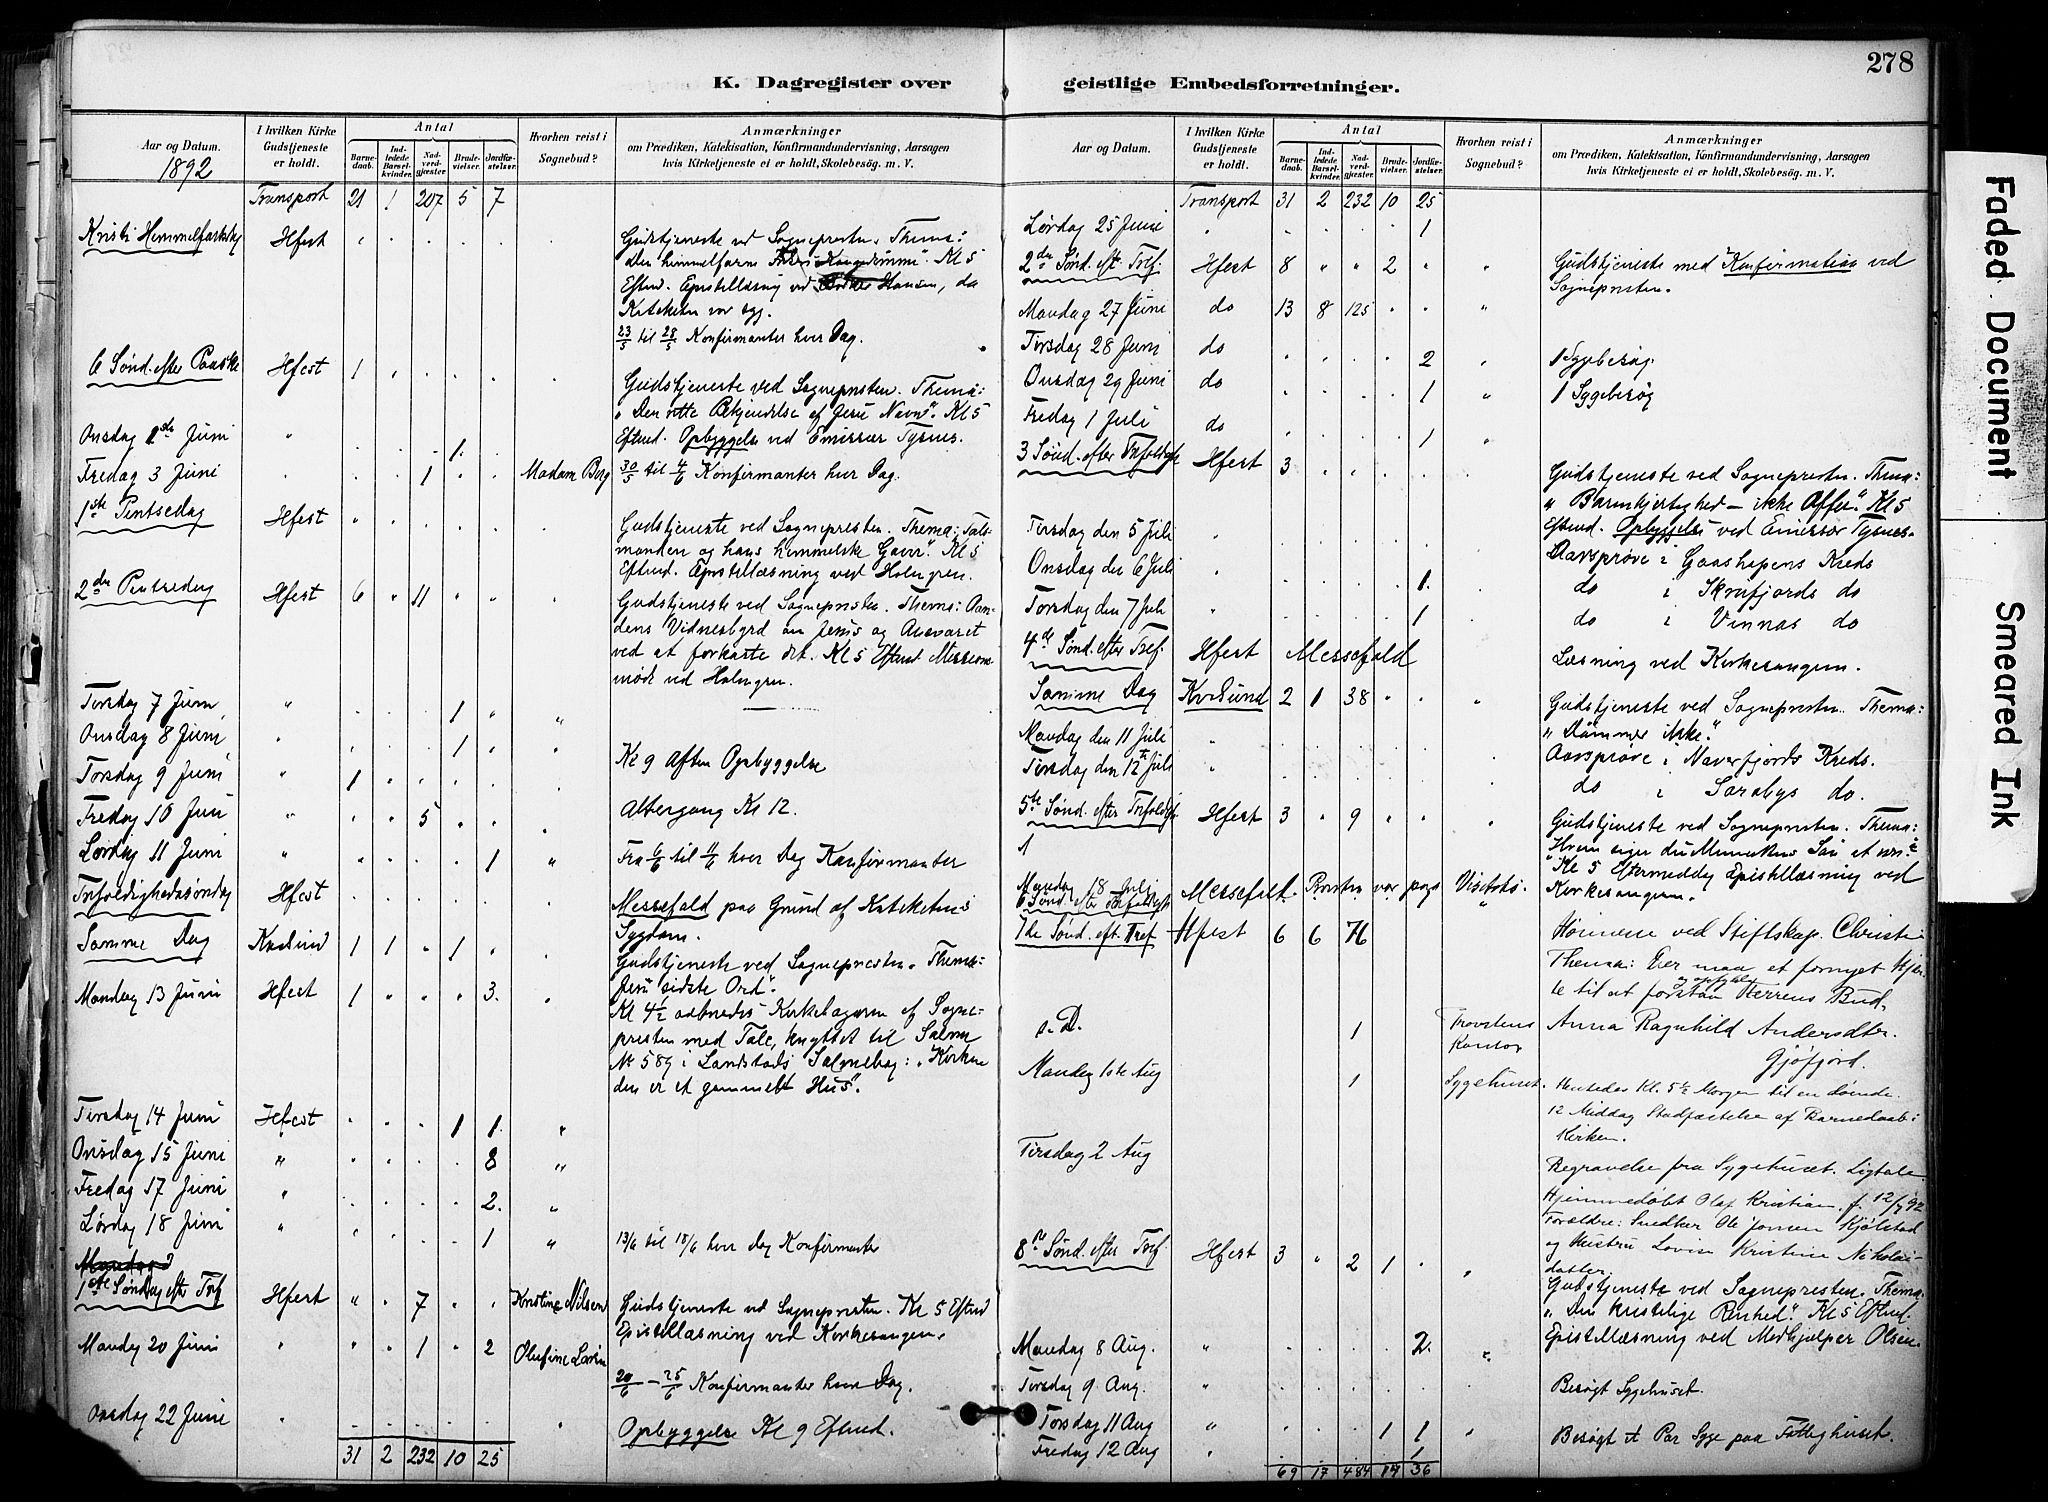 278
K. Dagregister over geistlige Embedsforretninger.
Aar og Datum.
1892
I hvilken Kirke Gudstjeneste er holdt.
Antal
Barnedaab.
Indledede Barselkvinder.
Nadverdgjæster
Brudevielser.
Jordfæstelser.
Hvorhen reist i Sognebud?
Anmærkninger
om Prædiken, Katekisation, Konfirmandundervisning, Aarsagen
hvis Kirketjeneste ei er holdt, Skolebesøg. m. V.
Transport 21 1 207 5 7
Kristi Himmelfartsdag Hfest
Gudstjeneste ved Sognepresten. Thema:
Den himmelfarne
Kl 5
Eftmd. Epistellæsning ved Hansen, da
Kateketen var syg.
23/5 til 28/5 Konfirmanter hver Dag.
6 Sønd. efter Paaske Hfest 1
Gudstjeneste ved Sognepresten. Thema:
"Den rette Bekjendelse af Jesu Navn". Kl 5
Onsdag 1ste Juni " 1.
Eftmd. Opbyggelse ved Emissær Tysnes.
Fredag 3 Juni 1 Madam Berg
30/5 til 4/6 Konfirmanter hver Dag.
1ste Pintsedag Hfest
Gudstjeneste ved Sognepresten. Thema: Tals-
manden og hans himmelske Gaver". Kl 5
Eftmd. Epistellæsning ved Holmgren.
2den Pintsedag Hfest 6 " 11 " "
Gudstjeneste ved Sognepresten. Thema: Aan-
dens Vidnesbyrd om Jesus og Ansvaret
ved at forkaste det. Kl 5 Eftmd Missions
møde ved Holmgren.
Tirsdag 7 Juni " 1 " "
Onsdag 8 Juni " 1 " "
Kl 9 Aften Opbyggelse
Torsdag 9 Juni " 1
Fredag 10 Juni " " " 5 " "
Altergang Kl 12.
Lørdag 11 Juni " 1 "
Fra 6/6 til 11/6 hver Dag Konfirmanter
Trefoldighedssøndag Hfest
Messefald paa Grund af Kateketens
Sygdom.
Samme Dag Kvalsund 1 1 " 1 "
Gudstjeneste ved Sognepresten. Thema:
Jesu sidste Ord".
Mandag 13 Juni Hfest 1 " " " 3. "
Kl 4½ aabnedes Kirkebagaren af Sogne-
presten med Tale, knyttet til Salme
No 589 i Landstads Salmebog: "Kirken
den er et gammelt Hus".
Tirsdag 14 Juni Hfest 1 1. "
Onsdag 15 Juni " 8 "
Fredag 17 Juni " 2. "
Lørdag 18 Juni " 1 "
13/6 til 18/6 hver dag Konfirmanter
Mandag
1ste Søndag efter Tref Hfest " " 7 " " Kristine Nilsen
Gudstjeneste ved Sognepresten. Kl 5 Eftmd
Epistellæsning ved Kirkesangeren.
Mandag 20 Juni " " " 1 " 2 Olufine
20/6 - 25/6 Konfirmanter hver Dag.
Onsdag 22 Juni
Opbyggelse Kl 9 Eftmd.
31 2 232 10 25
Aar og Datum.
I hvilken Kirke Gudstjeneste er holdt.
Antal
Barnedaab.
Indledede Barselkvinder.
Nadverdgjæster
Brudevielser.
Jordfæstelser.
Hvorhen reist i Sognebud?
Anmærkninger
om Prædiken, Katekisation, Konfirmandundervisning, Aarsagen
hvis Kirketjeneste ei er holdt, Skolebesøg. m. V.
Transport 31 2 232 10 25
Lørdag 25 Juni " 1
2den Sønd. eft. Tref. Hfest 8 " " 2 " "
Gudstjeneste med Konfirmation ved
Sognepresten.
Mandag 27 Juni do 13 8 125 " " "
Tirsdag 28 Juni do 2 " 1 Sygebesøg
Onsdag 29 Juni do 1 " 1 Sygebesøg
Fredag 1 Juli do 1 "
3 Sønd. efter Trefoldigh Hfest 3
Gudstjeneste ved Sognepresten. Thema:
"Barmhjertighed - ikke Offer". Kl 5
Eftmd. Opbyggelse ved Emissær Tysnes.
Tirsdag den 5 Juli " Aarsprøve i Gaashopens Kreds
Onsdag den 6 Juli " 1. do i Skrafjords do
Torsdag den 7 Juli " 1 do i Vinnas do
4de Sønd. efter Tref. Hfest Messefald
Læsning ved Kirkesangeren.
Samme Dag Kvalsund 2 1 38 " " "
Gudstjeneste ved Sognepresten. Thema:
"Dømmer ikke".
Mandag den 11 Juli " Aarsprøve i Naverfjords Kreds.
Tirsdag den 12te Juli " do i Sarabys do.
5te Sønd. efter Trefoldigh. Hfest 3 " 9 " " "
Gudstjeneste ved Sognepresten. Thema:
"Hvem siger du Menneskens Søn at være"
Kl 5 Eftermiddag Epistellæsning ved
Kirkesangeren.
Mandag 18 Juli
6 Sønd. efter Trefoldigh Messefald. Presten var paa Visitats.
7de Sønd. eft. Tref. Hfest 6 6 76
ved Stiftskap. Christie
Thema: Eier maa et fornyet Hjer-
te til at forstaa og opfylde Herrens Bud.
s. D. 1 Provstens Kontor Anna Ragnhild Andersdtr.
Gjøfjord.
Mandag 1ste Aug 1 Sygehuset. Hentedes Kl. 5½ Morgen til en døende.
12 Middag Stadfæstelse af Barnedaab i
Kirken.
Tirsdag 2 Aug
Begravelse fra Sygehuset. Ligtale
Hjemmedøbt Olaf Kristian f. 12/7 92
Forældre: Snedker Ole Jonsen Kjølstad
og Hustru Lovise Kristine Nikolai-
datter.
8de Sønd. efter Tref. Hfest 3 " 2 1 "
Gudstjeneste ved Sognepresten. Thema:
"Den kristelige Renhed". Kl 5 Eftmd.
Epistellæsning ved Medhjælper Olsen.
Mandag 8 Aug. " 2. "
Tirsdag 9 Aug. " Besøgt Sygehuset.
Torsdag 11 Aug " 1 1 " Besøgt et Par Syge paa Fattighuset.
Fredag 12 Aug " 1
69 17 484 14 36
Faded Document
Smeared Ink